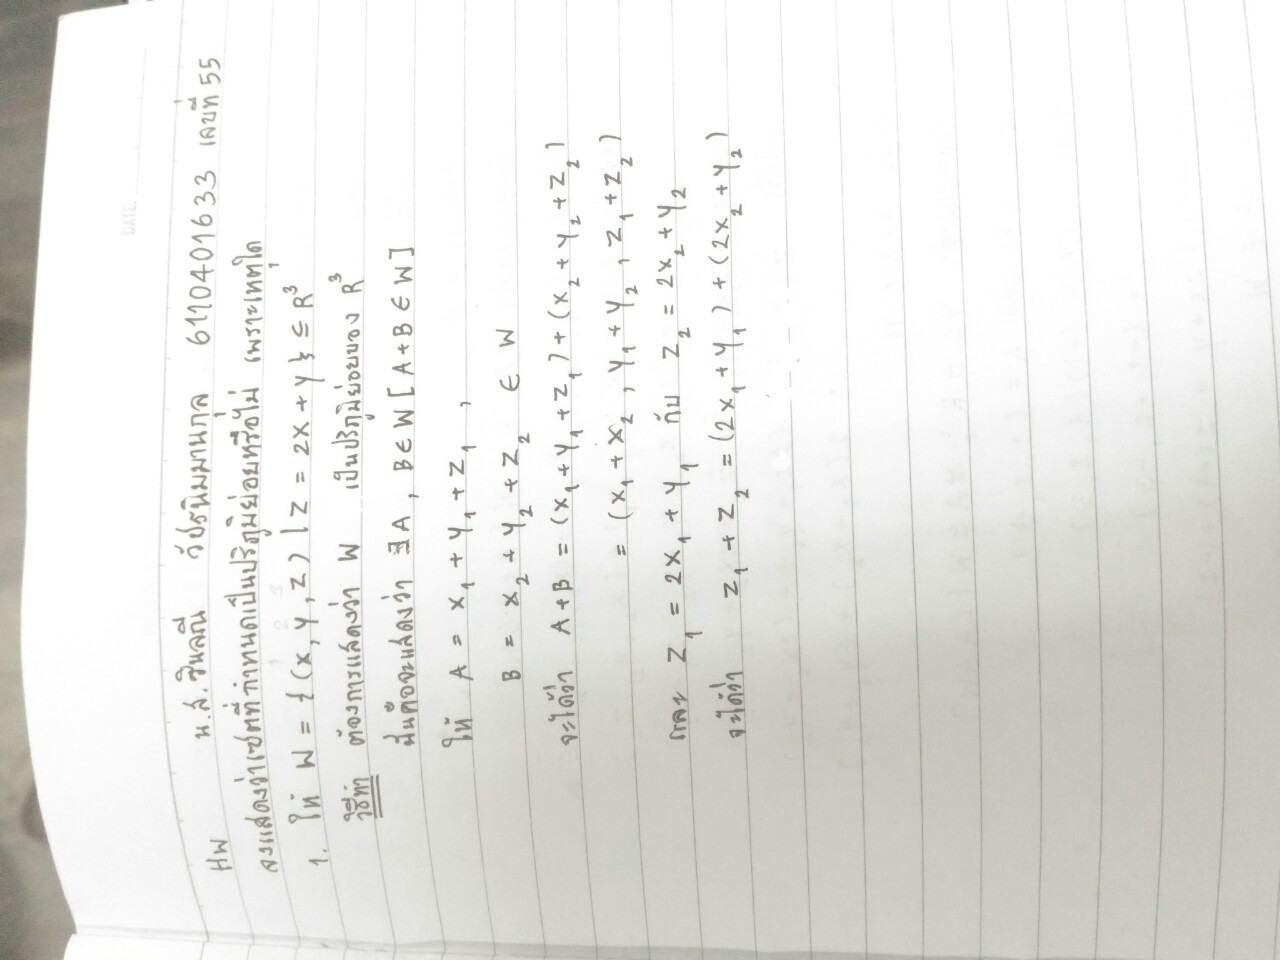 DATE:
HW น.ส. ชินลณี วัชรนิมมานกุล 6110401633 เลขที่ 55
จงแสดงว่าเซตที่กำหนดเป็นปริภูมิย่อยหรือไม่ เพราะเหตุใด
1 2 3
1. ให้ W = { (x, y, z) | z = 2x + y } ⊆ R³
วิธีทำ ต้องการแสดงว่า W เป็นปริภูมิย่อยของ R³
นั่นคือจะแสดงว่า ∃A, B ∈ W [A + B ∈ W]
ให้ A = x₁ + y₁ + z₁ ,
B = x₂ + y₂ + z₂ ∈ W
จะได้ว่า A + B = (x₁ + y₁ + z₁) + (x₂ + y₂ + z₂)
= (x₁ + x₂ , y₁ + y₂ , z₁ + z₂)
และ z₁ = 2x₁ + y₁ กับ z₂ = 2x₂ + y₂
จะได้ว่า z₁ + z₂ = (2x₁ + y₁) + (2x₂ + y₂)